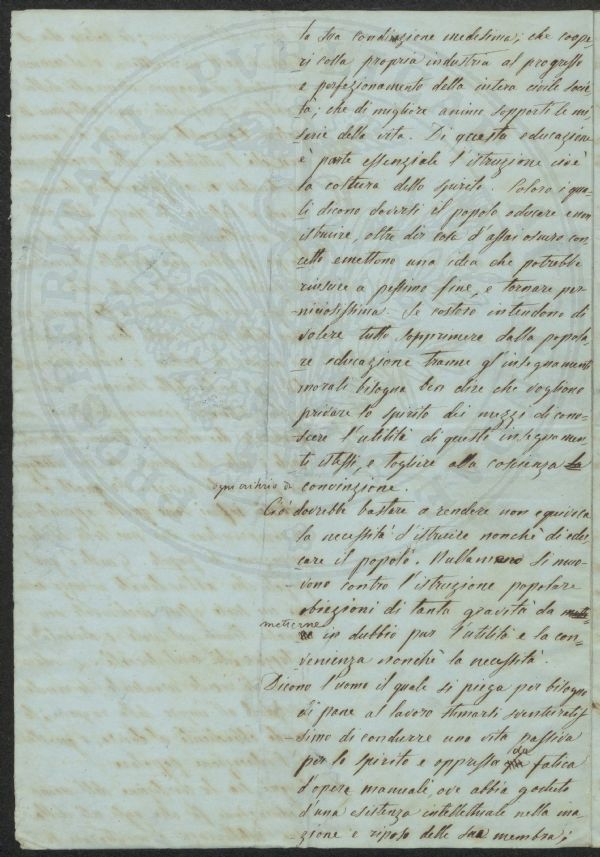 la sua condizione medesima; che coope-
ri colla propria industria al progresso
e perfezionamento della intera civile socie
tà; che di migliore animo sopporti le mi
serie della vita. Di questa educazione
è parte essenziale l'istruzione cioè
la coltura dello spirito. Coloro i qua-
li dicono doversi il popolo educare e non
istruire, oltre dir cosa d'assai oscuro con-
cetto emettono una idea che potrebbe
riuscire a pessimo fine, e tornare per-
niciosissima. Se costoro intendono di
volere tutto sopprimere dalla popola
re educazione tranne gl'insegnamenti
morali bisogna ben dire che vogliono
privare lo spirito dei mezzi di cono-
scere l'utilità di questi insegnamen
ti stessi, e togliere alla coscienza la
ogni criterio di convinzione.
Ciò dovrebbe bastare a rendere non equivoca
la necessità d'istruire nonchè di edu-
care il popolo. Nullameno si muo-
vono contro l'istruzione popolare
obiezioni di tanta gravità da
metterne in dubbio pur l'utilità e la con-
venienza nonchè la necessità.
Dicono l'uomo il quale si piega per bisogno
di pane al lavoro stimarsi sventuratis-
simo di condurre una vita passiva
per lo spirito e oppressa da fatica
d'opere manuali ove abbia goduto
d'una esistenza intellettuale nella ina
zione e riposo delle sue membra;
PROSPERITATI PUBLICAE